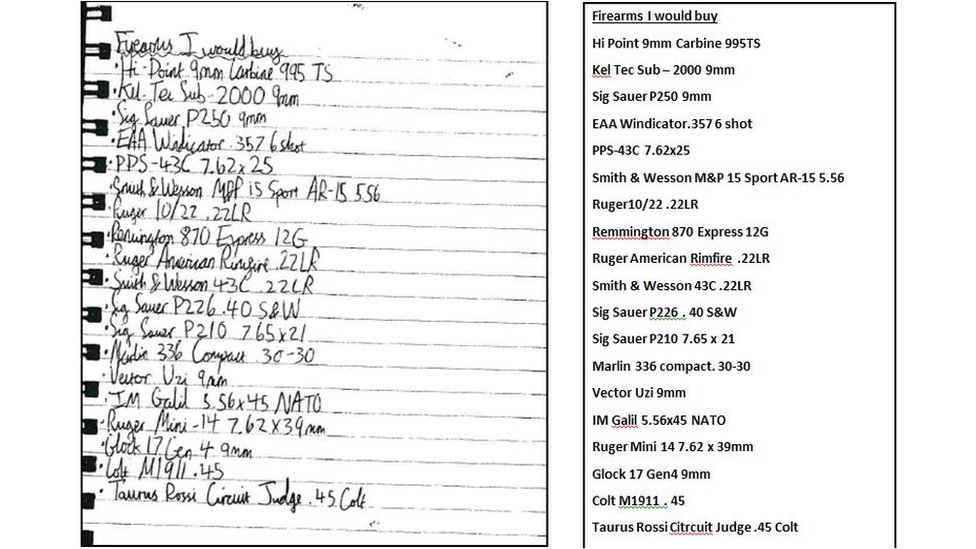 Firearms I would buy
· Hi-Point 9mm Carbine 995 TS
· Kel-Tec Sub-2000 9mm
· Sig Sauer P250 9mm
· EAA Windicator .357 6 shot
· PPS-43C 7.62x25
· Smith & Wesson M&P 15 Sport AR-15 5.56
· Ruger 10/22 .22LR
· Remington 870 Express 12G
· Ruger American Rimfire .22LR
· Smith & Wesson 43C .22LR
· Sig Sauer P226 .40 S&W
· Sig Sauer P210 7.65x21
· Marlin 336 Compact 30-30
· Vector Uzi 9mm
· IM Galil 5.56x45 NATO
· Ruger Mini-14 7.62x39mm
· Glock 17 Gen 4 9mm
· Colt M1911 .45
· Taurus Rossi Circuit Judge .45 Colt
Firearms I would buy
Hi Point 9mm Carbine 995TS
Kel Tec Sub – 2000 9mm
Sig Sauer P250 9mm
EAA Windicator.357 6 shot
PPS-43C 7.62x25
Smith & Wesson M&P 15 Sport AR-15 5.56
Ruger10/22 .22LR
Remmington 870 Express 12G
Ruger American Rimfire .22LR
Smith & Wesson 43C .22LR
Sig Sauer P226 . 40 S&W
Sig Sauer P210 7.65 x 21
Marlin 336 compact. 30-30
Vector Uzi 9mm
IM Galil 5.56x45 NATO
Ruger Mini 14 7.62 x 39mm
Glock 17 Gen4 9mm
Colt M1911 . 45
Taurus Rossi Citrcuit Judge .45 Colt